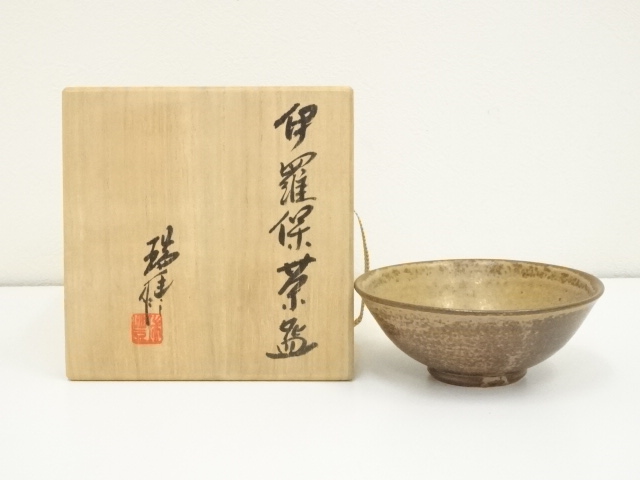 伊羅保茶盌
瑞峰作